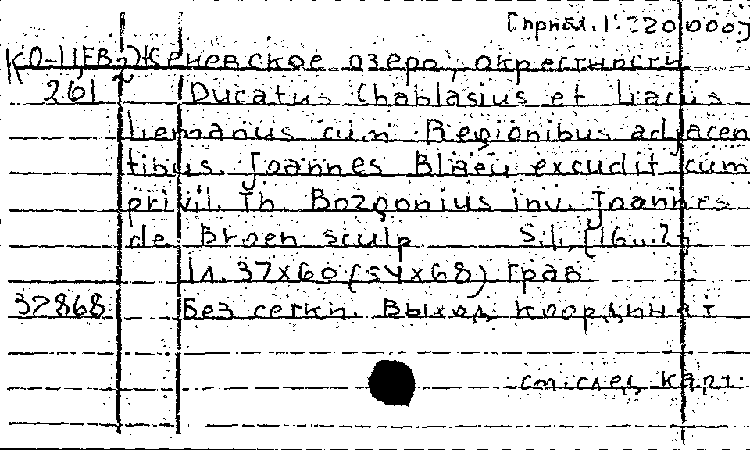 [прибл. 1:220 000]
Женевское озеро, окрестности
261 Ducatus Chablasius et Lacus
Lemanus cum Regionibus adjacen
tibus. Joannes Blaeu excudit cum
privil. Th. Bozgonius inv. Joannes
de Broen sculp S.l., [16..?].
1 л. 37x60 (54x68) Грав
37868 Без сетки. Выход координат
см. след карт.